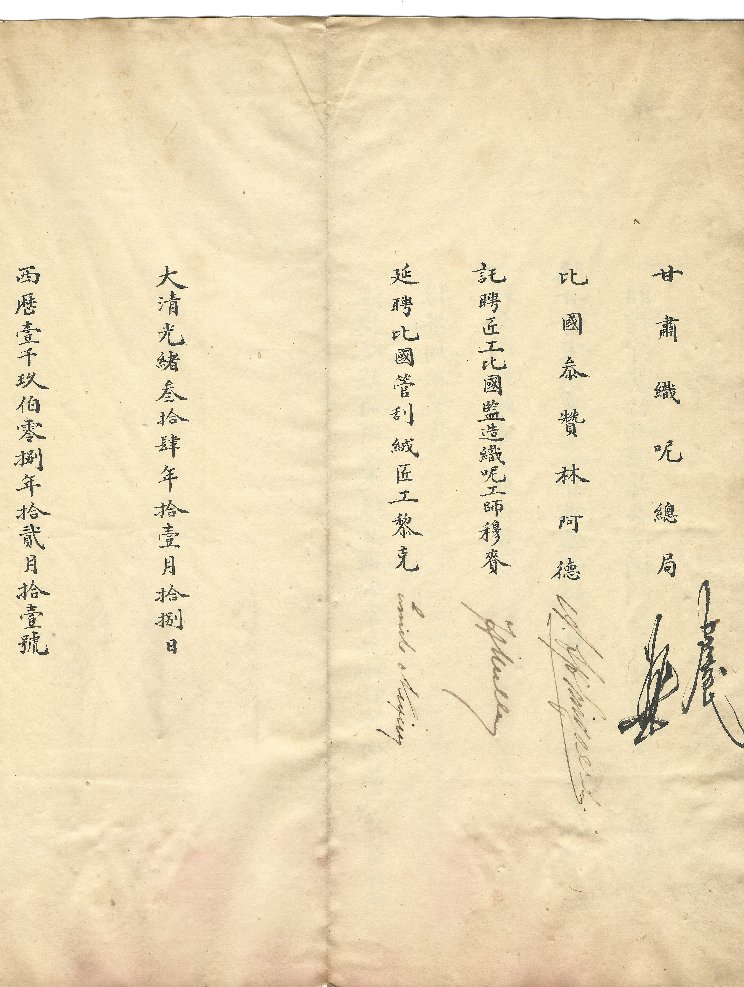 甘肅織呢總局
比國叅贊林阿德
託聘匠工比國監造織呢工師穆賚
延聘比國管刮絨匠工黎克
大清光緒叁拾肆年拾壹月拾捌日
西歷壹千玖伯零捌年拾貳月拾壹號